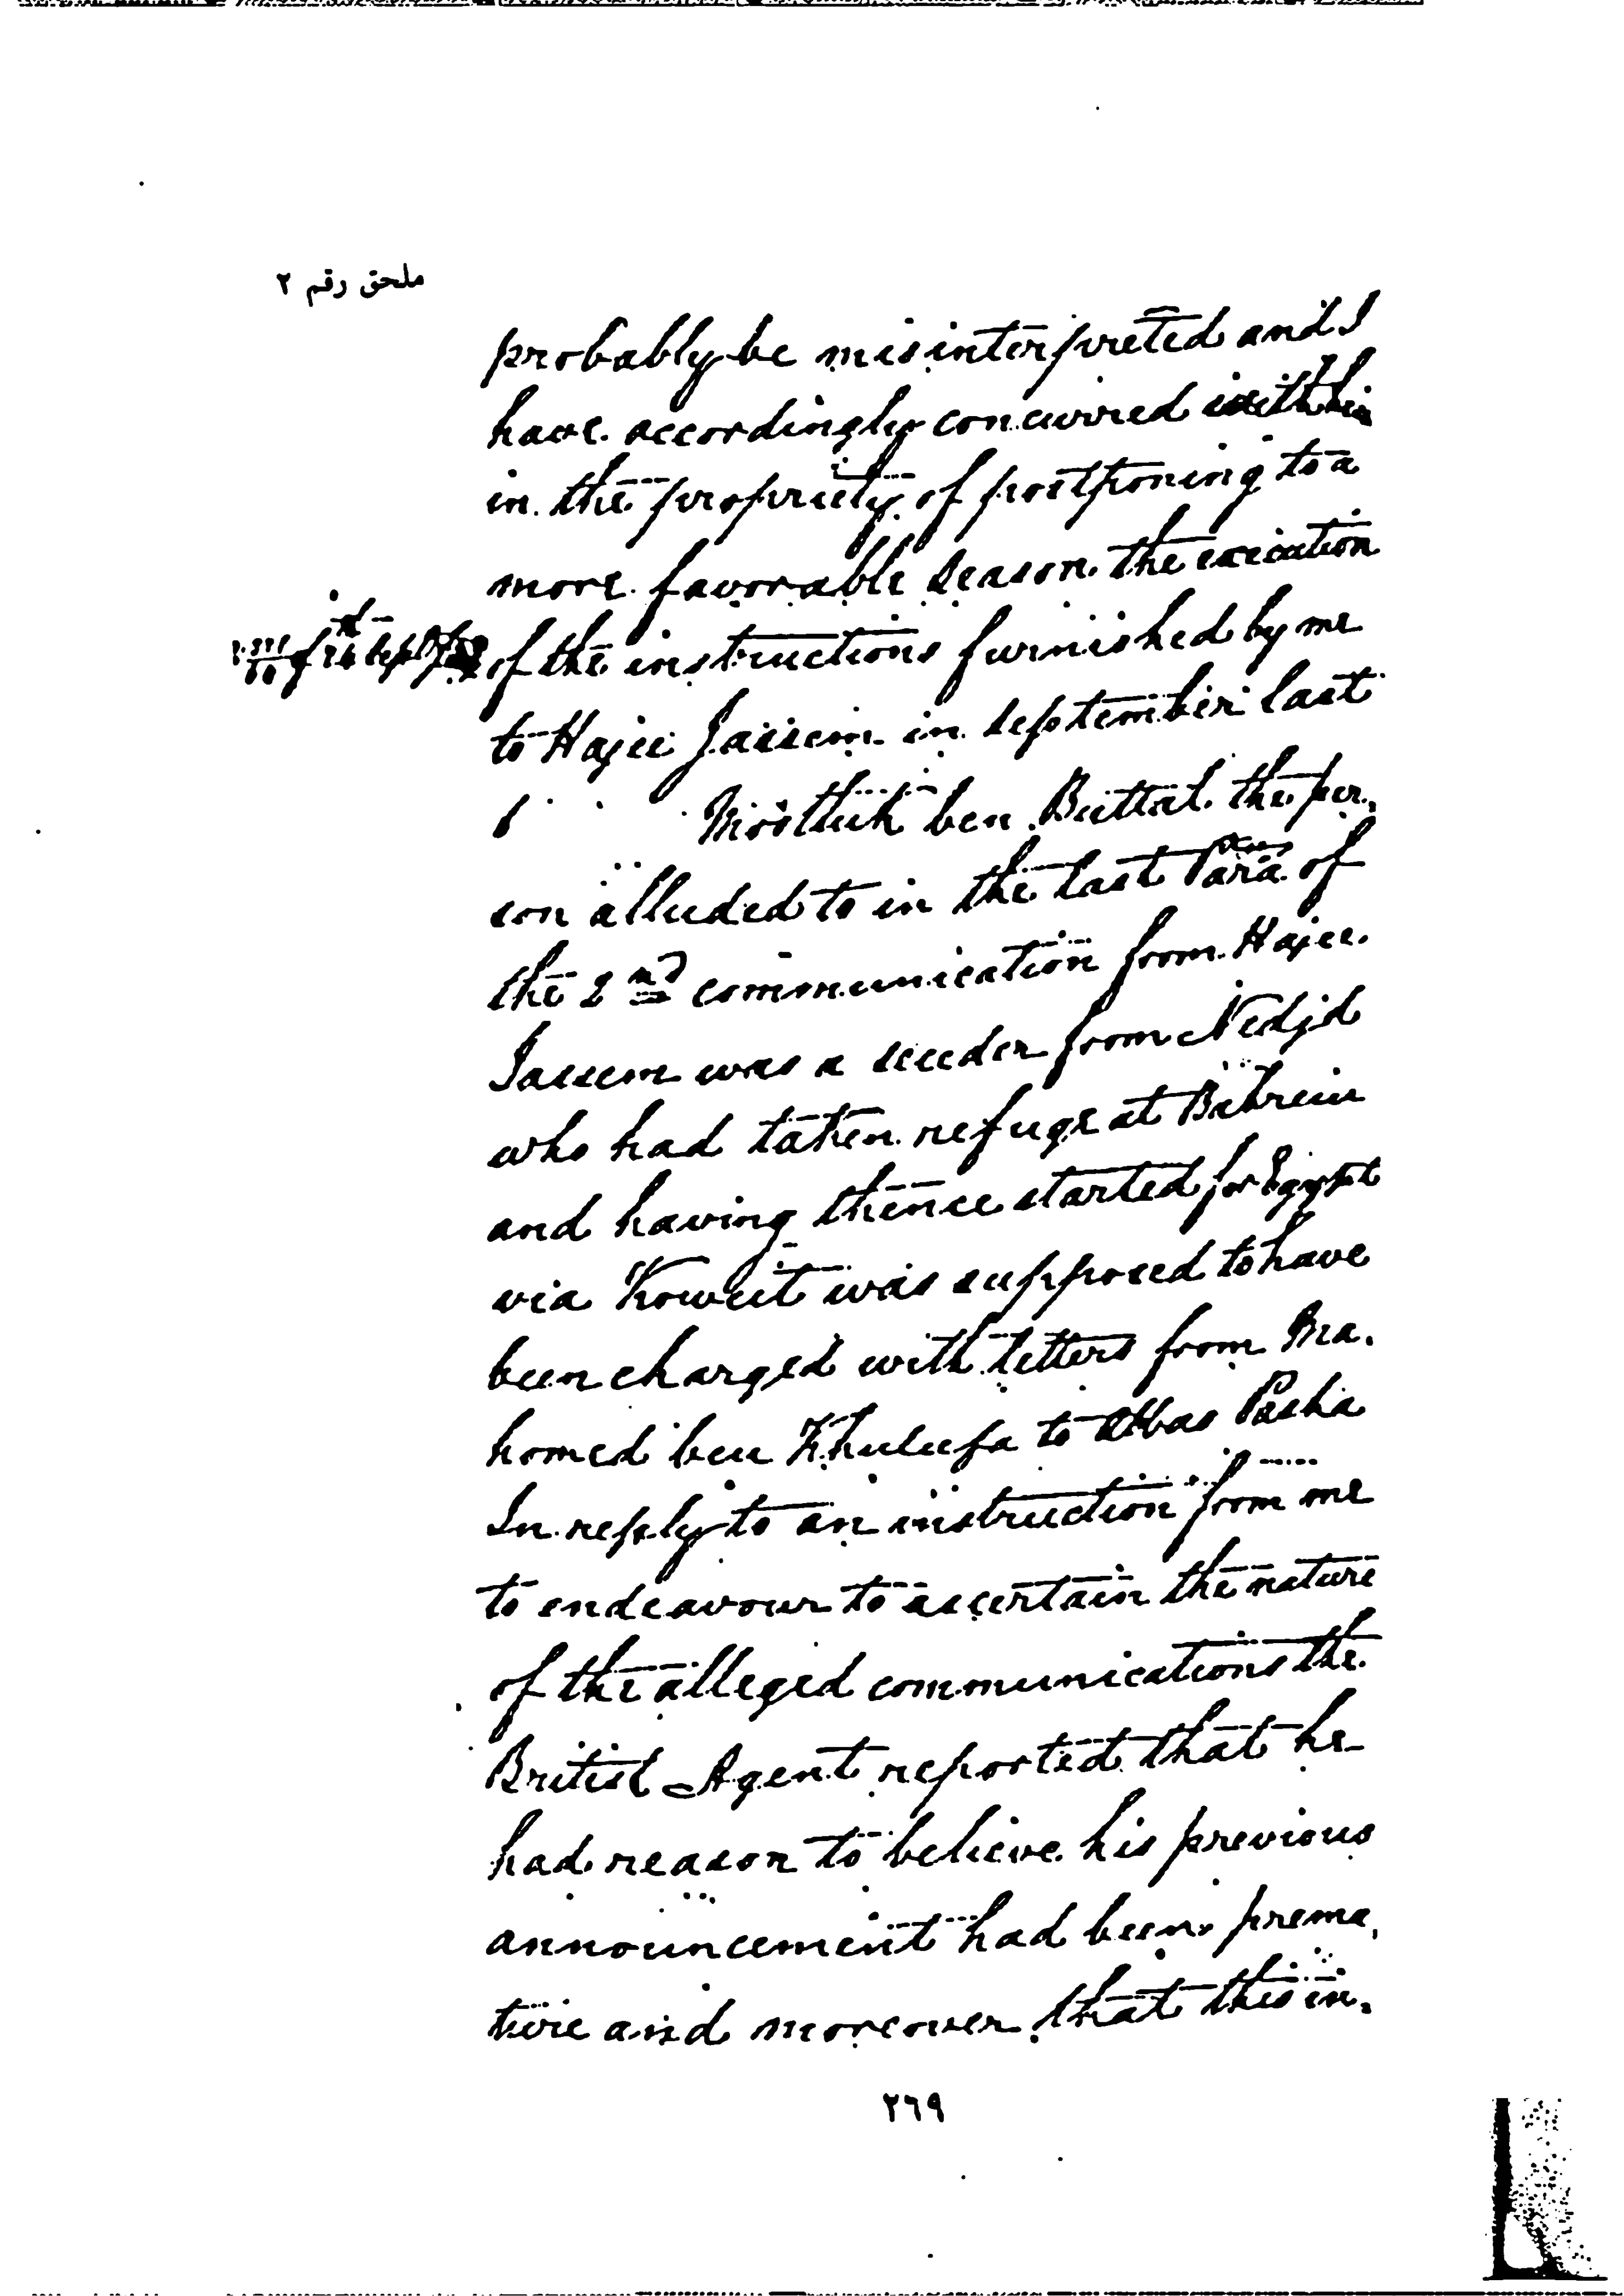 ملحق رقم ٢
probably be misinterpreted and I
have accordingly concurred with him
in the propriety of postponing to a
more favorable season the execution
of 26 Sept
of the instructions furnished by me
to Hajee Jassem in September last
Moothuk ben Buttal the per,
son alluded to in the last Para of
the 2nd communication from Hajee
Jassem was a seceder from Nedjd
who had taken refuge at Bahrein
and having thence started for Egypt
via Koweit was supposed to have
been charged with letters from Ma,
homed ben Khuleefa to Abbas Pasha
In reply to an instruction from me
to endeavour to ascertain the nature
of the alleged communications the
British Agent reported that he
had reason to believe his previous
announcement had been prema,
ture and moreover that this in,
٢٦٩